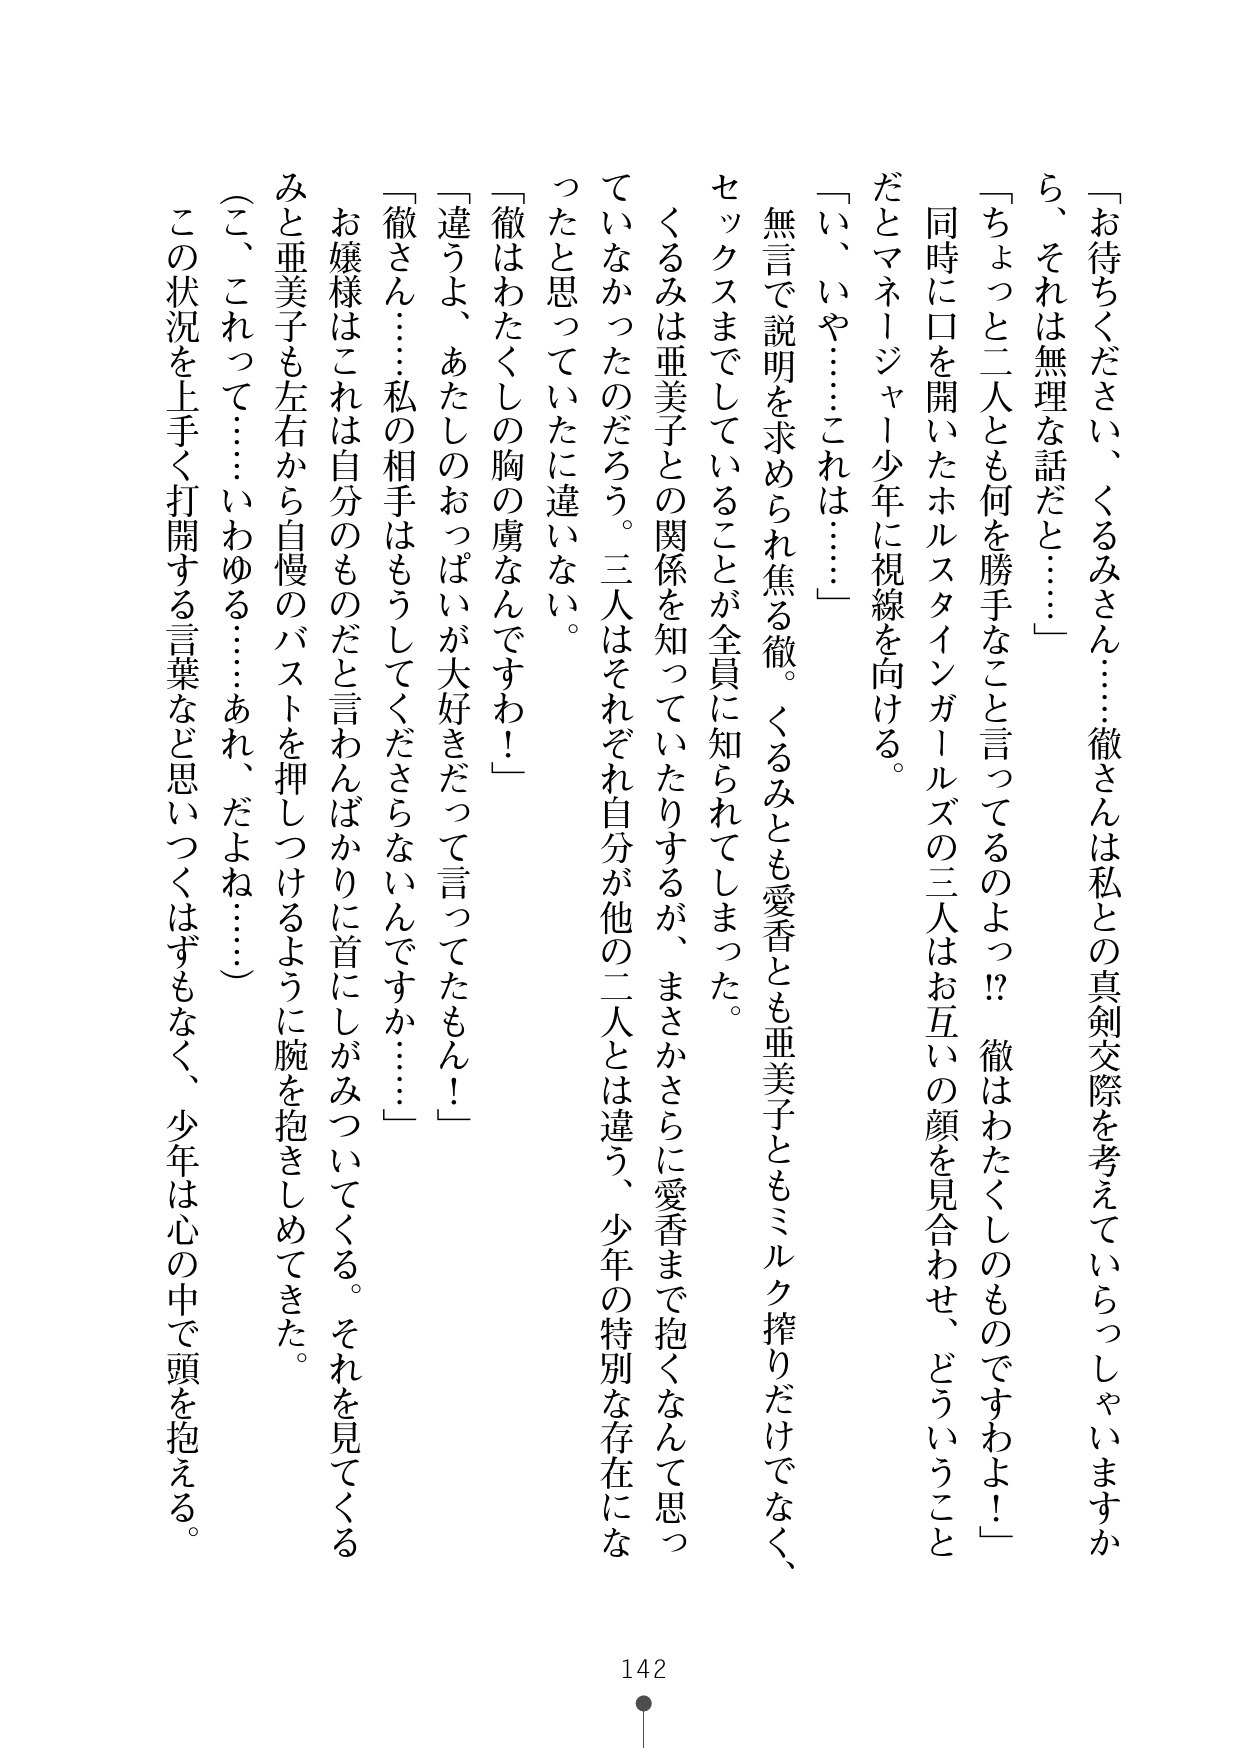 「お待ちください、くるみさん……徹さんは私との真剣交際を考えていらっしゃいますか
ら、それは無理な話だと……」
「ちょっと二人とも何を勝手なこと言ってるのよっ⁉　徹はわたくしのものですわよ！」
　同時に口を開いたホルスタインガールズの三人はお互いの顔を見合わせ、どういうこと
だとマネージャー少年に視線を向ける。
「い、いや……これは……」
　無言で説明を求められ焦る徹。くるみとも愛香とも亜美子ともミルク搾りだけでなく、
セックスまでしていることが全員に知られてしまった。
　くるみは亜美子との関係を知っていたりするが、まさかさらに愛香まで抱くなんて思っ
ていなかったのだろう。三人はそれぞれ自分が他の二人とは違う、少年の特別な存在にな
ったと思っていたに違いない。
「徹はわたくしの胸の虜なんですわ！」
「違うよ、あたしのおっぱいが大好きだって言ってたもん！」
「徹さん……私の相手はもうしてくださらないんですか……」
　お嬢様はこれは自分のものだと言わんばかりに首にしがみついてくる。それを見てくる
みと亜美子も左右から自慢のバストを押しつけるように腕を抱きしめてきた。
（こ、これって……いわゆる……あれ、だよね……）
　この状況を上手く打開する言葉など思いつくはずもなく、少年は心の中で頭を抱える。
142